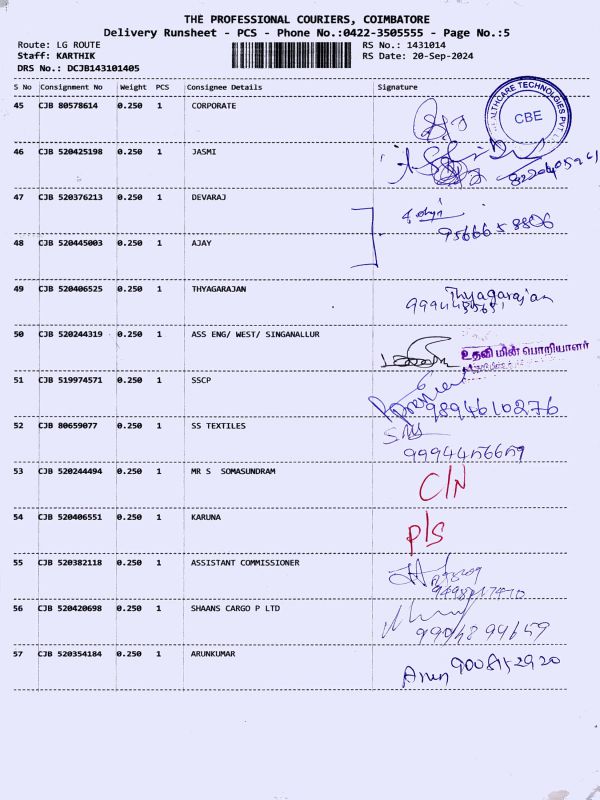 THE PROFESSIONAL COURIERS, COIMBATORE
Delivery Runsheet - PCS - Phone No.:0422-3505555 - Page No.:5
Route: LG ROUTE RS No.: 1431014
Staff: KARTHIK RS Date: 20-Sep-2024
DRS No.: DCJB143101405
S No Consignment No Weight PCS Consignee Details Signature
45 CJB 80578614 0.250 1 CORPORATE
HEALTHCARE TECHNOLOGIES PVT
CBE
46 CJB 520425198 0.250 1 JASMI
47 CJB 520376213 0.250 1 DEVARAJ
9566658806
48 CJB 520445003 0.250 1 AJAY
49 CJB 520406525 0.250 1 THYAGARAJAN
Thyagarajan
50 CJB 520244319 0.250 1 ASS ENG/ WEST/ SINGANALLUR
உதவி மின் பொறியாளர்
51 CJB 519974571 0.250 1 SSCP
9894610276
52 CJB 80659077 0.250 1 SS TEXTILES
53 CJB 520244494 0.250 1 MR S SOMASUNDRAM
C/N
54 CJB 520406551 0.250 1 KARUNA
P/S
55 CJB 520382118 0.250 1 ASSISTANT COMMISSIONER
56 CJB 520420698 0.250 1 SHAANS CARGO P LTD
57 CJB 520354184 0.250 1 ARUNKUMAR
Arun 9008152920